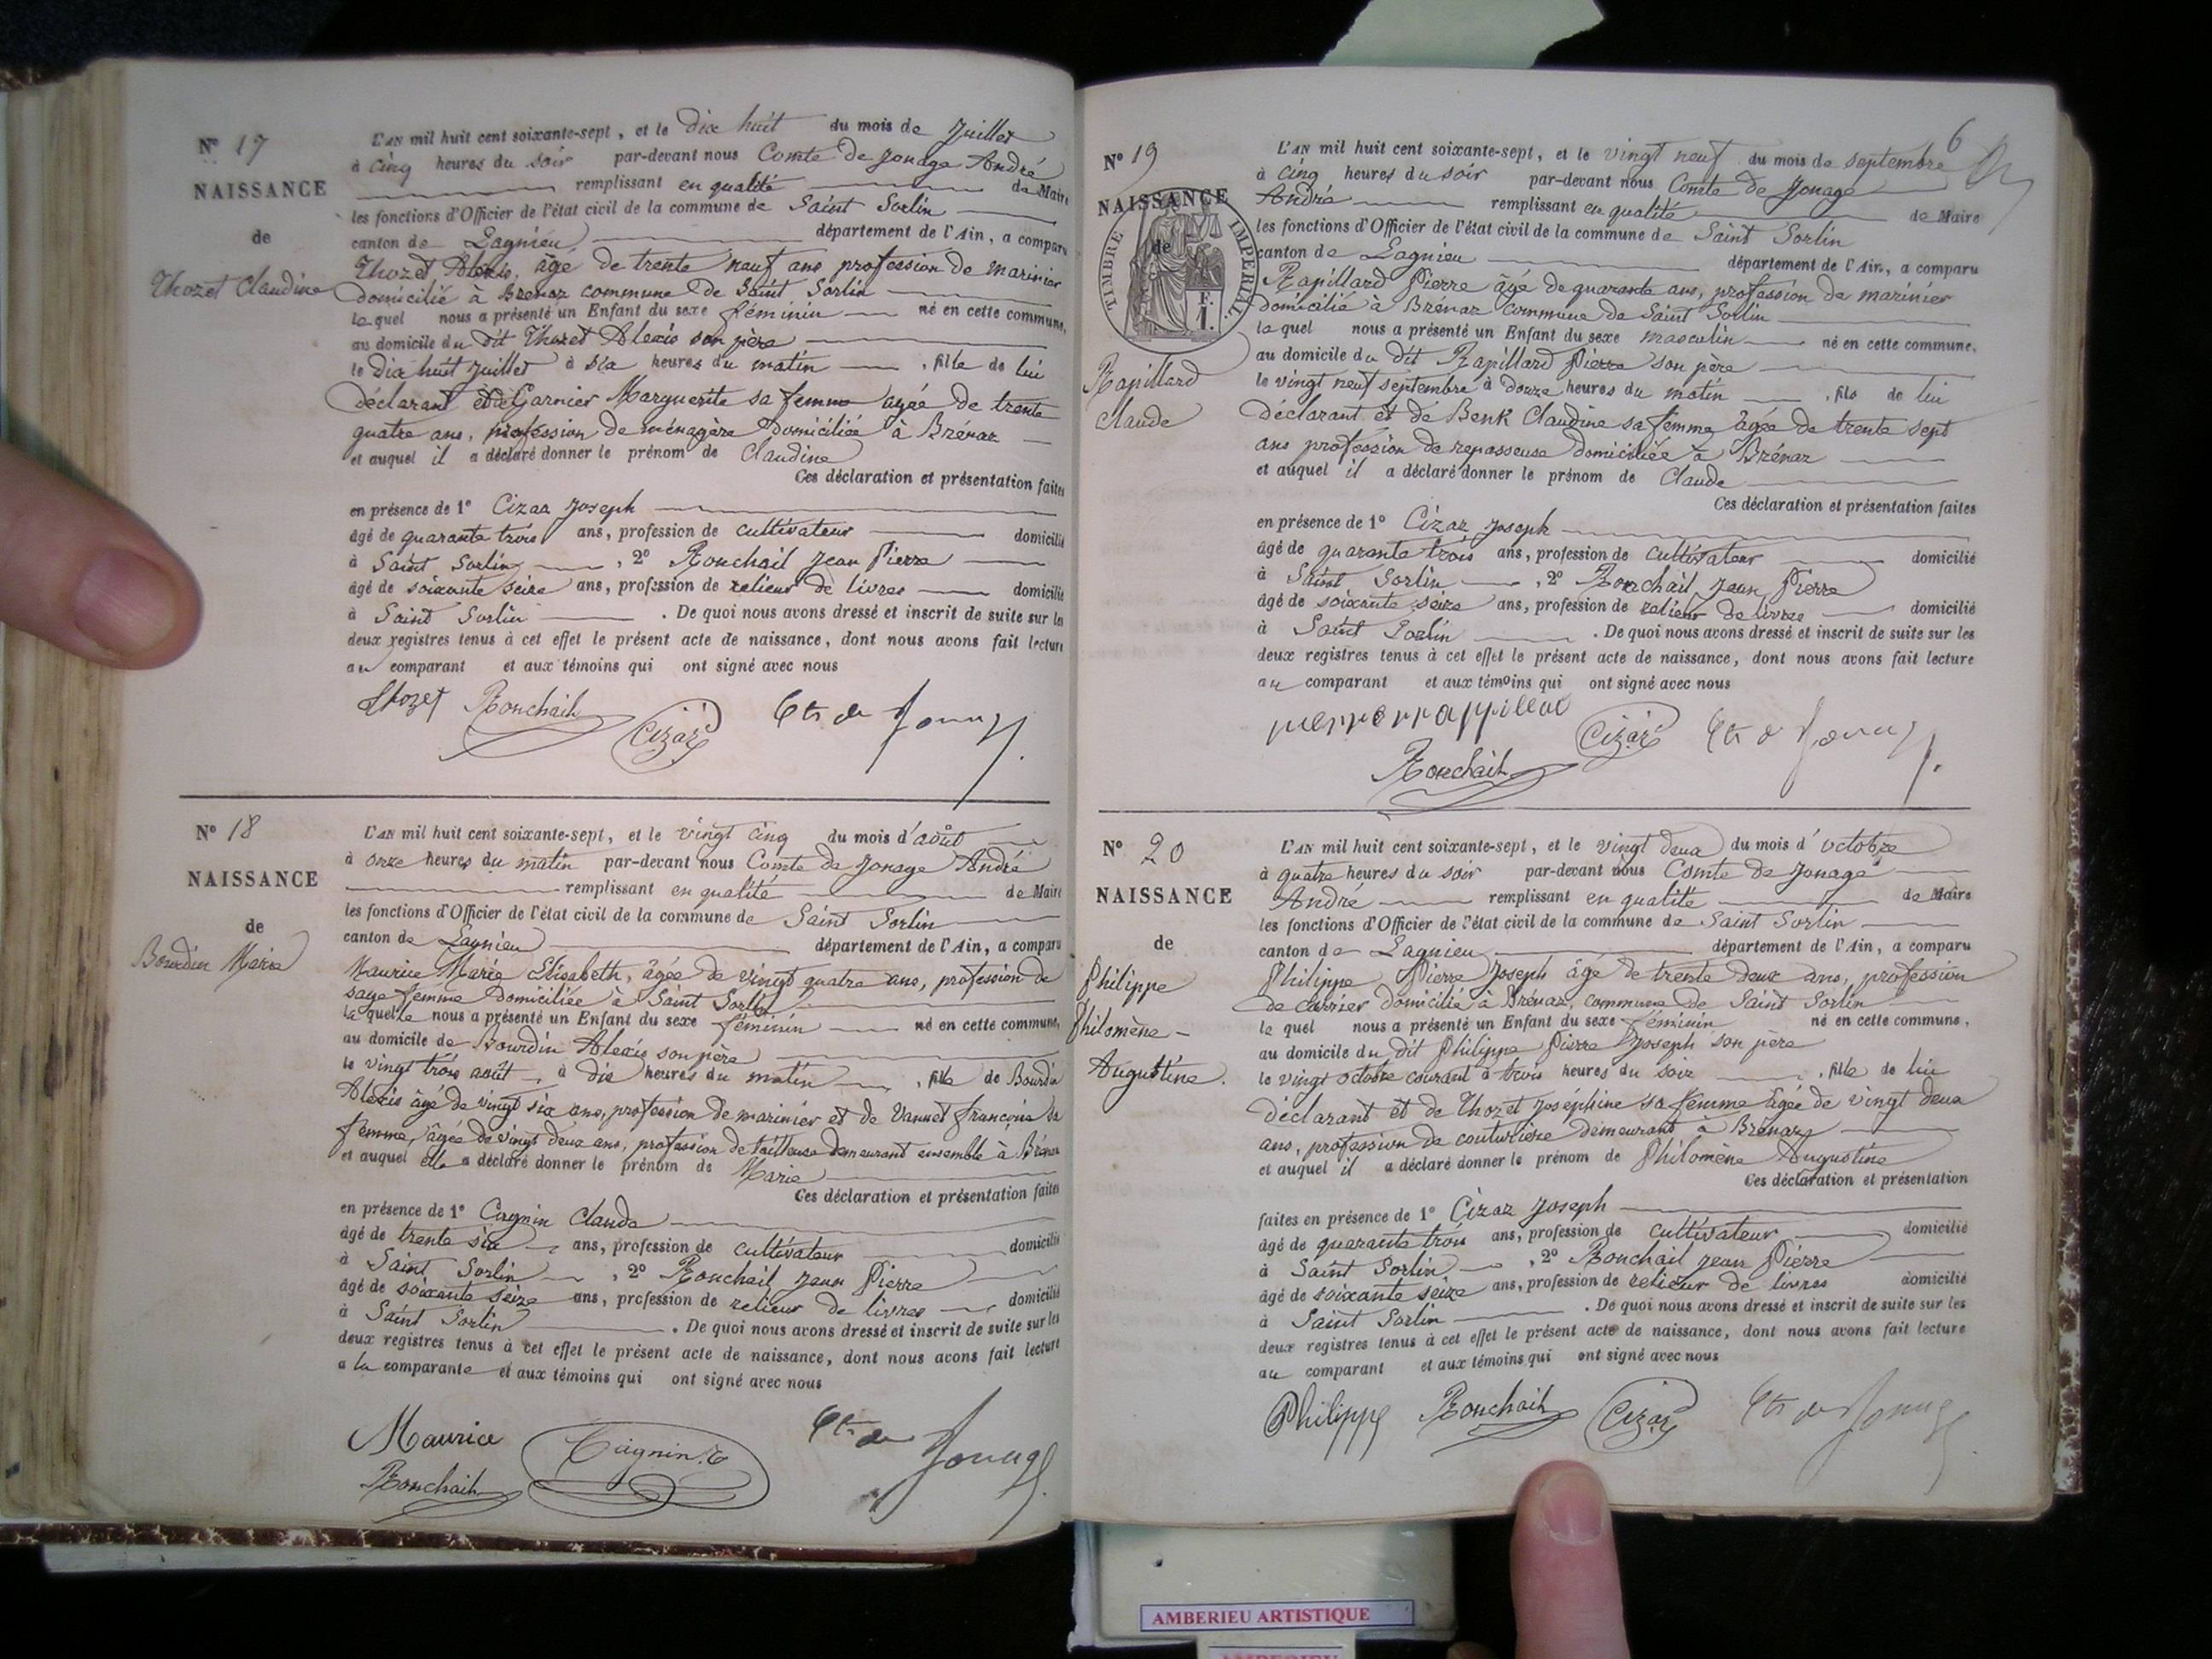 N° 17
NAISSANCE
de
Thozet Claudine
L'AN mil huit cent soixante-sept, et le dix huit du mois de Juillet
à cinq heures du soir par-devant nous Comte de Jonage André
remplissant en qualité de Maire
les fonctions d'Officier de l'état civil de la commune de Saint Sorlin
canton de Lagnieu département de l'Ain, a comparu
Thozet Alexis, âgé de trente neuf ans profession de marinier
domicilié à Brénaz commune de Saint Sorlin
lequel nous a présenté un Enfant du sexe féminin né en cette commune,
au domicile du dit Thozet Alexis son père
le dix huit Juillet à six heures du matin , fille de lui
déclarant et de Garnier Marguerite sa femme agée de trente
quatre ans, profession de ménagère domiciliée à Brénaz
et auquel il a déclaré donner le prénom de Claudine
Ces déclaration et présentation faites
en présence de 1° Cizaz Joseph
âgé de quarante trois ans, profession de cultivateur domicilié
à Saint Sorlin , 2° Ronchail Jean Pierre
âgé de soixante seize ans, profession de relieur de livres domicilié
à Saint Sorlin . De quoi nous avons dressé et inscrit de suite sur les
deux registres tenus à cet effet le présent acte de naissance, dont nous avons fait lecture
au comparant et aux témoins qui ont signé avec nous
Thozet Ronchail Cizaz Cte de Jonage
N° 18
NAISSANCE
de
Bourdin Marie
L'AN mil huit cent soixante-sept, et le vingt cinq du mois d'août
à onze heures du matin par-devant nous Comte de Jonage André
remplissant en qualité de Maire
les fonctions d'Officier de l'état civil de la commune de Saint Sorlin
canton de Lagnieu département de l'Ain, a comparu
Maurice Marie Elisabeth, âgée de vingt quatre ans, profession de
sage femme domiciliée à Saint Sorlin
laquelle nous a présenté un Enfant du sexe féminin né en cette commune,
au domicile de Bourdin Alexis son père
le vingt trois août à dix heures du matin , fille de Bourdin
Alexis âgé de vingt six ans, profession de marinier et de Vannet Françoise sa
femme, âgée de vingt deux ans, profession de tailleuse demeurant ensemble à Brénaz
et auquel elle a déclaré donner le prénom de Marie
Ces déclaration et présentation faites
en présence de 1° Cagnin Claude
âgé de trente six ans, profession de cultivateur domicilié
à Saint Sorlin , 2° Ronchail Jean Pierre
âgé de soixante seize ans, profession de relieur de livres domicilié
à Saint Sorlin . De quoi nous avons dressé et inscrit de suite sur les
deux registres tenus à cet effet le présent acte de naissance, dont nous avons fait lecture
a la comparante et aux témoins qui ont signé avec nous
Maurice Cagnin.C Cte de Jonage
Ronchail
6
N° 19
NAISSANCE
de
TIMBRE IMPERIAL.
F.
1.
Rapillard
Claude
L'AN mil huit cent soixante-sept, et le vingt neuf du mois de septembre
à cinq heures du soir par-devant nous Comte de Jonage
André remplissant en qualité de Maire
les fonctions d'Officier de l'état civil de la commune de Saint Sorlin
canton de Lagnieu département de l'Ain, a comparu
Rapillard Pierre âgé de quarante ans, profession de marinier
domicilié à Brénaz commune de Saint Sorlin
lequel nous a présenté un Enfant du sexe masculin né en cette commune,
au domicile du dit Rapillard Pierre son père
le vingt neuf septembre à douze heures du matin , fils de lui
déclarant et de Benk Claudine sa femme âgée de trente sept
ans profession de repasseuse domiciliée à Brénaz
et auquel il a déclaré donner le prénom de Claude
Ces déclaration et présentation faites
en présence de 1° Cizaz Joseph
âgé de quarante trois ans, profession de cultivateur domicilié
à Saint Sorlin , 2° Ronchail Jean Pierre
âgé de soixante seize ans, profession de relieur de livres domicilié
à Saint Sorlin . De quoi nous avons dressé et inscrit de suite sur les
deux registres tenus à cet effet le présent acte de naissance, dont nous avons fait lecture
au comparant et aux témoins qui ont signé avec nous
Cizaz Cte de Jonage
Ronchail
N° 20
NAISSANCE
de
Philippe
Philomène-
Augustine.
L'AN mil huit cent soixante-sept, et le vingt deux du mois d'octobre
à quatre heures du soir par-devant nous Comte de Jonage
André remplissant en qualité de Maire
les fonctions d'Officier de l'état civil de la commune de Saint Sorlin
canton de Lagnieu département de l'Ain, a comparu
Philippe Pierre Joseph âgé de trente deux ans, profession
de carrier domicilié à Brénaz, commune de Saint Sorlin
lequel nous a présenté un Enfant du sexe féminin né en cette commune,
au domicile du dit Philippe Pierre Joseph son père
le vingt octobre courant à trois heures du soir , fille de lui
déclarant et de Thozet Joséphine sa femme âgée de vingt deux
ans, profession de couturière demeurant à Brénaz
et auquel il a déclaré donner le prénom de Philomène Augustine
Ces déclaration et présentation
faites en présence de 1° Cizaz Joseph
âgé de quarante trois ans, profession de cultivateur domicilié
à Saint Sorlin , 2° Ronchail Jean Pierre
âgé de soixante seize ans, profession de relieur de livres domicilié
à Saint Sorlin . De quoi nous avons dressé et inscrit de suite sur les
deux registres tenus à cet effet le présent acte de naissance, dont nous avons fait lecture
au comparant et aux témoins qui ont signé avec nous
Philippe Ronchail Cizaz Cte de Jonage
AMBERIEU ARTISTIQUE
AMBERIEU